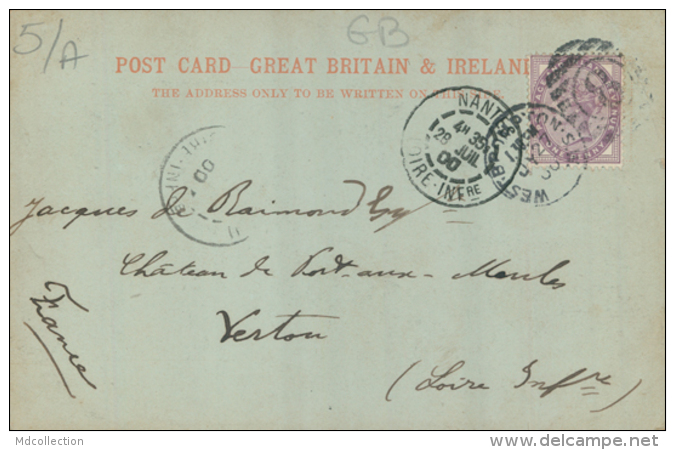 5/A
GB
POST CARD GREAT BRITAIN & IRELAND
THE ADDRESS ONLY TO BE WRITTEN ON THIS SIDE.
NANTES
4H 35
28 JUIL
00
LOIRE-INFRE
WES
ON-S
00
Jacques de Raimond Esq
Château de Port-aux-Meules
Vertou
(Loire Infre)
France
Mdcollection
www.delcampe.net